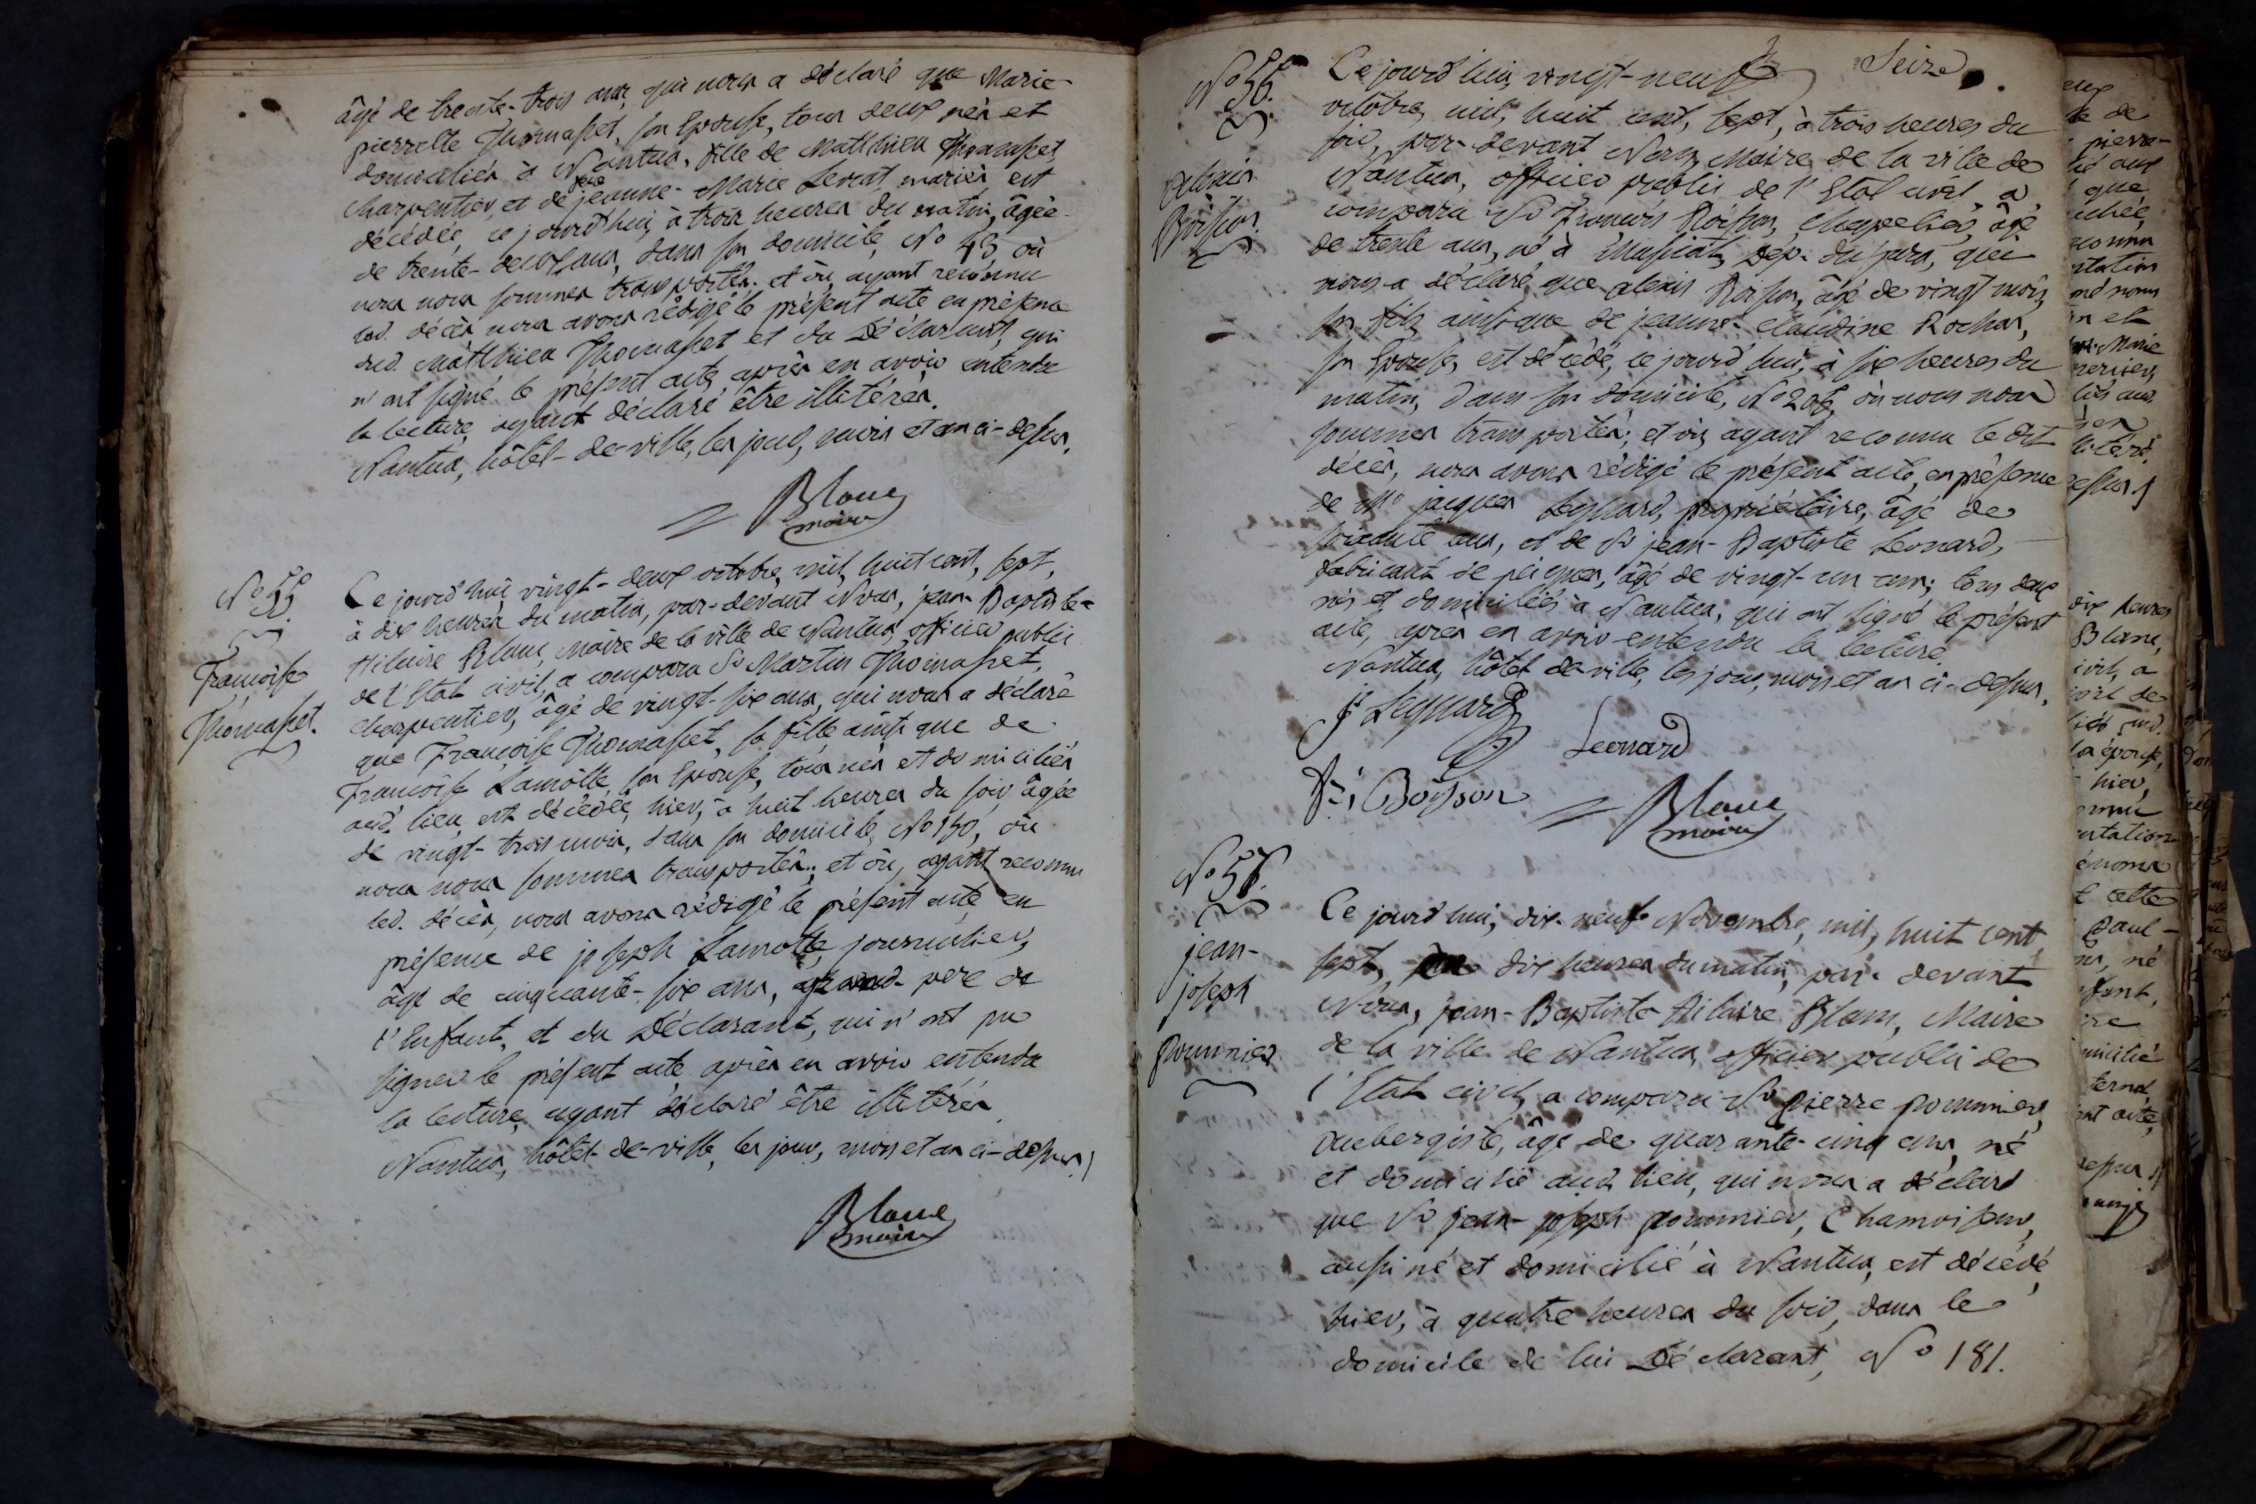 âgé de trente-trois ans, qui nous a déclaré que Marie-
pierrette Thomasset, son Epouse, tous deux nés et
domiciliés à Nantua, fille de Matthieu Thomasset,
charpentier, et de feüe jeanne-Marie Levrat, mariés est
décédée, ce jourd'hui, à trois heures du matin, âgée
de trente-deux ans, dans son domicile, No 43, où
nous nous sommes transportés. et où, ayant reconnu
led. décès nous avons rédigé le présent acte en présence
dud. Matthieu Thomasset et du Déclarant, qui
n'ont signé le présent acte, après en avoir entendu
la lecture, ayant déclaré être illitérés.
Nantua, hôtel-de-ville, les jour, mois et an ci-dessus.
Blanc
maire
No 55.
Françoise
Thomasset.
Ce jourd'hui vingt-deux octobre, mil, huit cent, sept,
à dix heures du matin, par-devant Nous, jean-Baptiste-
Hilaire Blanc, Maire de la ville de Nantua, officier public
de l'Etat civil, a comparu Sr Martin Thomasset,
charpentier, âgé de vingt-six ans, qui nous a déclaré
que Françoise Thomasset, sa fille ainsi que de
Françoise Lamotte, son Epouse, tous nés et domiciliés
aud. lieu, est décédée, hier, à huit heures du soir, âgée
de vingt-trois mois, dans son domicile, No 140, où
nous nous sommes transportés; et où, ayant reconnu
led. décès, nous avons rédigé le présent acte, en
présence de joseph Lamotte, journalier,
âgé de cinquante-six ans, grand-pere de
l'Enfant, et du Déclarant, qui n'ont pu
signer le présent acte après en avoir entendu
la lecture, ayant déclaré être illitérés.
Nantua, hôtel-de-ville, les jour, mois et an ci-dessus.
Blanc
maire
Seize
No 56.
alexis
Boisson.
Ce jourd'hui, vingt-neuf
octobre, mil, huit cent, sept, à trois heures du
soir, par-devant Nous, Maire de la ville de
Nantua, officier public de l'Etat civil, a
comparu Sr François Boisson, Chapelier, âgé
de trente ans, né à dép. du jura, qui
nous a déclaré que alexis Boisson, âgé de vingt mois,
son fils ainsi que de jeanne-claudine Rochas,
son Epouse, est décédé, ce jourd'hui, à six heures du
matin, dans son domicile, No 206, où nous nous
sommes transportés; et où, ayant reconnu le dit
décès, nous avons rédigé le présent acte, en présence
de Mr jacques Leguard, propriétaire, âgé de
soixante ans, et de Sr jean-Baptiste Leonard,
fabricant de peignes, âgé de vingt-un ans; tous deux
nés et domiciliés à Nantua; qui ont signé le présent
acte, après en avoir entendu la lecture.
Nantua, hôtel de ville, les jour, mois et an ci-dessus.
Leguard
Leonard
Boisson
Blanc
maire
No 57.
jean-
joseph
pommier
Ce jourd'hui, dix-neuf Novembre, mil, huit cent
sept, dix heures du matin, par-devant
Nous, jean-Baptiste Hilaire Blanc, Maire
de la ville de Nantua, officier public de
l'Etat civil, a comparu Sr pierre pommier,
aubergiste, âgé de quarante-cinq ans, né
et domicilié aud. lieu, qui nous a déclaré
que Sr jean-joseph pommier, Chamoiseur,
aussi né et domicilié à Nantua, est décédé,
hier, à quatre heures du soir, dans le
domicile de lui Déclarant, No 181.